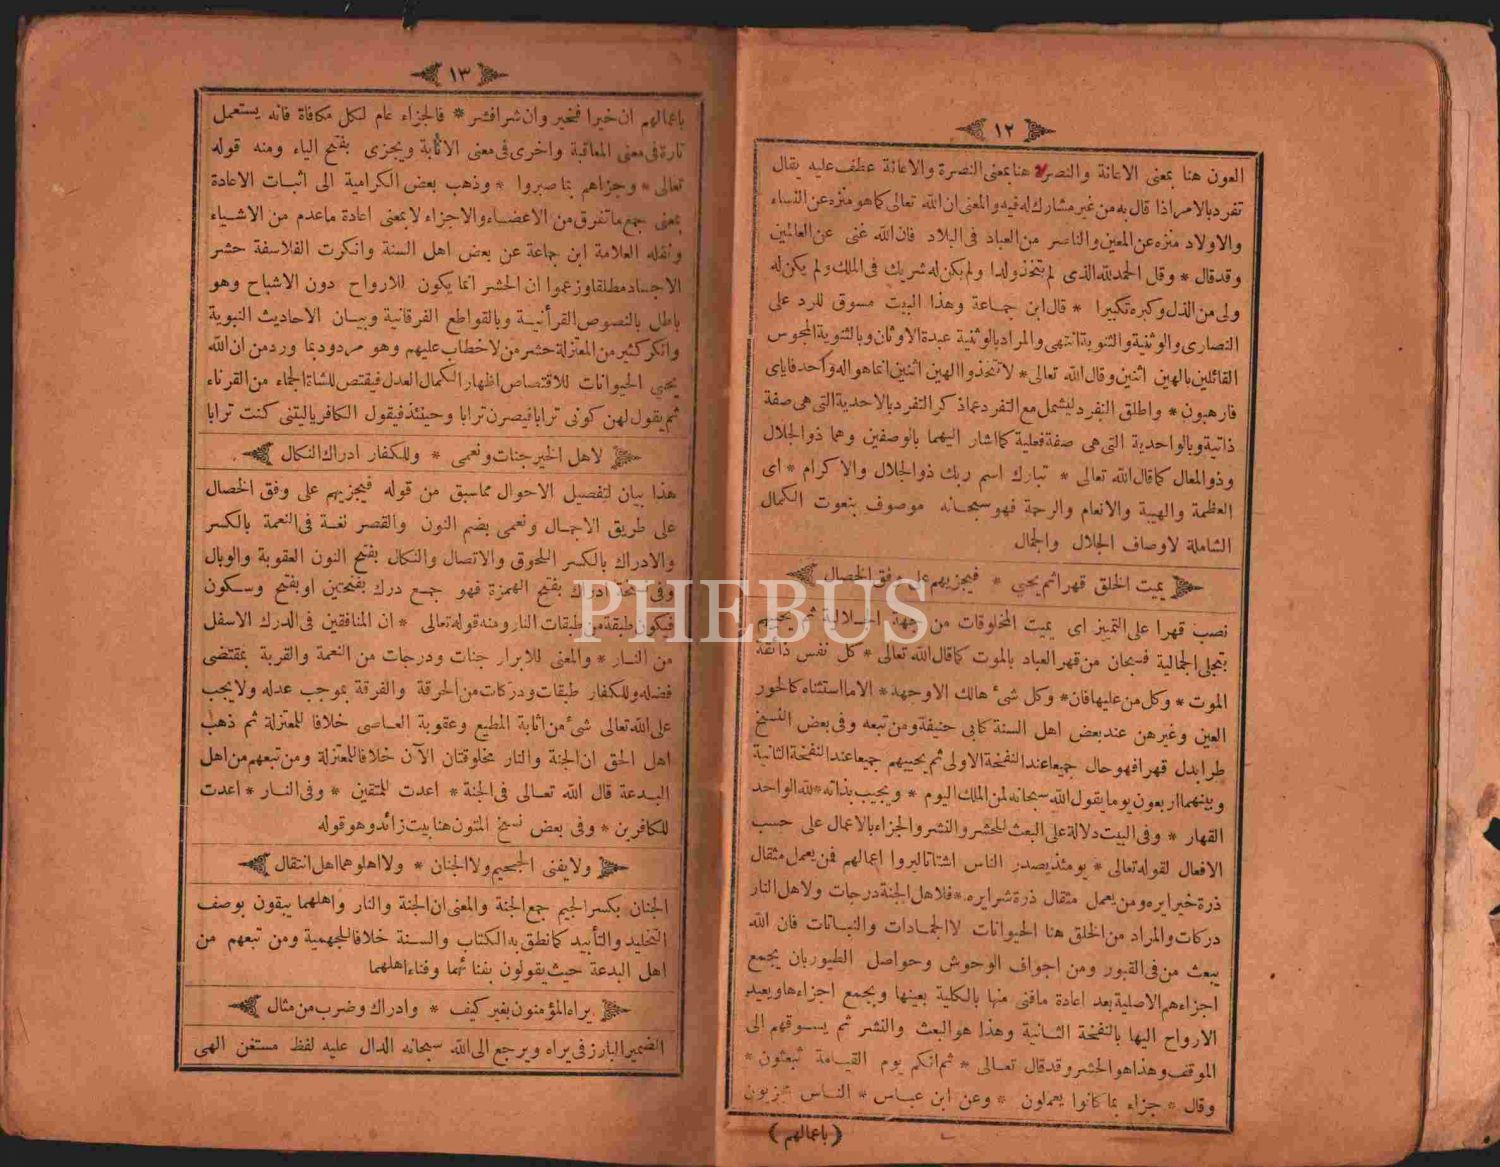 ١٢
العون هنا بمعنى الاعانة والنصر هنا بمعنى النصرة والاعانة عطف عليه يقال
تفرد بالامر اذا قال به من غير مشارك له فيه والمعنى ان الله تعالى كما هو منزه عن النساء
والاولاد منزه عن المعين والناصر من العباد فى البلاد فان الله غنى عن العالمين
وقد قال * وقل الحمد لله الذى لم يتخذ ولدا ولم يكن له شريك فى الملك ولم يكن له
ولى من الذل وكبره تكبيرا * قال ابن جماعة وهذا البيت مسوق للرد على
النصارى والوثنية والثنوية انتهى والمراد بالوثنية عبدة الاوثان وبالثنوية المجوس
القائلين بالهين اثنين وقال الله تعالى * لا تتخذوا الهين اثنين انما هو اله واحد فاياى
فارهبون * واطلق التفرد ليشمل مع التفرد عماذ كر التفرد بالاحدية التى هى صفة
ذاتية وبالواحدية التى هى صفة فعلية كما اشار اليهما بالوصفين وهما ذو الجلال
وذو المعال كما قال الله تعالى * تبارك اسم ربك ذو الجلال والاكرام * اى
العظمة والهيبة والانعام والرحمة فهو سبحانه موصوف بنعوت الكمال
الشاملة لاوصاف الجلال والجمال
يميت الخلق قهرا ثم يحيى * فيجزيهم على وفق الخصال
نصب قهرا على التميز اى يميت المخلوقات من جهة الجلالية ثم يحييهم
بتجلى الجمالية فسبحان من قهر العباد بالموت كما قال الله تعالى * كل نفس ذائقة
الموت * وكل من عليها فان * وكل شئ هالك الا وجهه * الا ما استثناه كالحور
العين وغيرهن عند بعض اهل السنة كابى حنيفة ومن تبعه وفى بعض النسخ
طرا بدل قهرا فهو حال جميعا عند النفخة الاولى ثم يحييهم جميعا عند النفخة الثانية
وبينهما اربعون يوما يقول الله سبحانه لمن الملك اليوم * ويجيب بذاته * لله الواحد
القهار * وفى البيت دلالة على البعث للحشر والنشر والجزاء بالاعمال على حسب
الافعال لقوله تعالى * يومئذ يصدر الناس اشتاتا ليروا اعمالهم فمن يعمل مثقال
ذرة خيرا يره ومن يعمل مثقال ذرة شرا يره * فلاهل الجنة درجات ولاهل النار
دركات والمراد من الخلق هنا الحيوانات لا الجمادات والنباتات فان الله
يبعث من فى القبور ومن اجواف الوحوش وحواصل الطيور بان يجمع
اجزاءهم الاصلية بعد اعادة ما فنى منها بالكلية بعينها ويجمع اجزاءها ويعيد
الارواح اليها بالنفخة الثانية وهذا هو البعث والنشر ثم يسوقهم الى
الموقف وهذا هو الحشر وقد قال تعالى * ثم انكم يوم القيامة تبعثون *
وقال * جزاء بما كانوا يعملون * وعن ابن عباس * الناس مجزيون
(باعمالهم)
١٣
باعمالهم ان خيرا فخير وان شرا فشر * فالجزاء عام لكل مكافاة فانه يستعمل
تارة فى معنى المعاقبة واخرى فى معنى الاثابة ويجزى بفتح الياء ومنه قوله
تعالى * وجزاهم بما صبروا * وذهب بعض الكرامية الى اثبات الاعادة
بمعنى جمع ما تفرق من الاعضاء والاجزاء لا بمعنى اعادة ما عدم من الاشياء
ونقله العلامة ابن جماعة عن بعض اهل السنة وانكرت الفلاسفة حشر
الاجساد مطلقا وزعموا ان الحشر انما يكون للارواح دون الاشباح وهو
باطل بالنصوص القرأنية وبالقواطع الفرقانية وبيان الاحاديث النبوية
وانكر كثير من المعتزلة حشر من لا خطاب عليهم وهو مردود بما ورد من ان الله
يحيى الحيوانات للاقتصاص اظهار الكمال العدل فيقتص للشاة الجماء من القرناء
ثم يقول لهن كونى ترابا فيصرن ترابا وحينئذ فيقول الكافر ياليتنى كنت ترابا
لاهل الخير جنات ونعمى * وللكفار ادراك النكال
هذا بيان لتفصيل الاحوال مما سبق من قوله فيجزيهم على وفق الخصال
على طريق الاجمال ونعمى بضم النون والقصر لغة فى النعمة بالكسر
والادراك بالكسر اللحوق والاتصال والنكال بفتح النون العقوبة والوبال
وفى نسخة ادراك بفتح الهمزة فهو جمع درك بفتحتين او بفتح وسكون
فيكون طبقة من طبقات النار ومنه قوله تعالى * ان المنافقين فى الدرك الاسفل
من النار * والمعنى للابرار جنات ودرجات من النعمة والقربة بمقتضى
فضله وللكفار طبقات ودركات من الحرقة والفرقة بموجب عدله ولا يجب
على الله تعالى شئ من اثابة المطيع وعقوبة العاصى خلافا للمعتزلة ثم ذهب
اهل الحق ان الجنة والنار مخلوقتان الآن خلافا للمعتزلة ومن تبعهم من اهل
البدعة قال الله تعالى فى الجنة * اعدت للمتقين * وفى النار * اعدت
للكافرين * وفى بعض نسخ المتون هنا بيت زائد وهو قوله
ولا يفنى الجحيم ولا الجنان * ولا اهلوهما اهل انتقال
الجنان بكسر الجيم جمع الجنة والمعنى ان الجنة والنار واهلهما يبقون بوصف
التخليد والتأبيد كما نطق به الكتاب والسنة خلافا للجهمية ومن تبعهم من
اهل البدعة حيث يقولون بفنائهما وفناء اهلهما
يراه المؤمنون بغير كيف * وادراك وضرب من مثال
الضمير البارز فى يراه ويرجع الى الله سبحانه الدال عليه لفظ مستغن الهى
PHEBUS